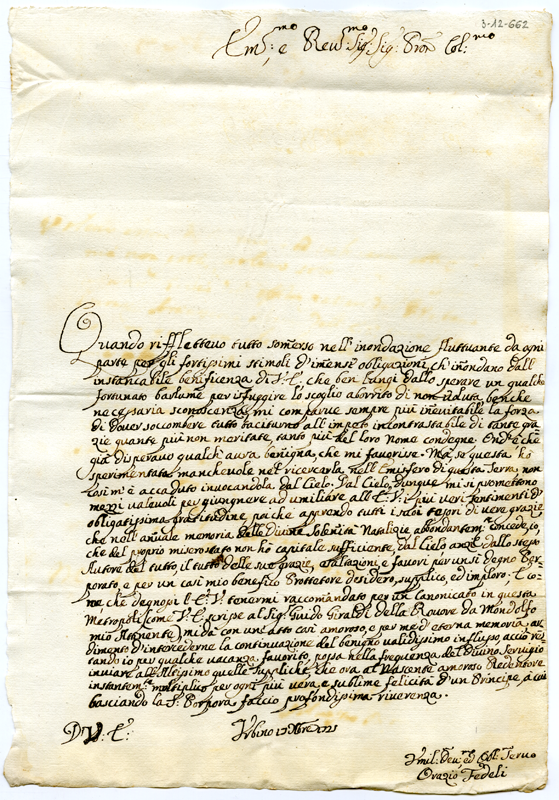 3-12-662
Em:mo e Rev:mo Sig: Sig: Pron Col:mo
Quando riflettevo tutto somerso nell'inondazione fluttuante da ogni
parte per gli fortissimi stimoli d'imensi obligazioni, ch'inondano dall'
instancabile benificenza di V: E:, che ben lungi dallo sperare un qualche
fortunato bastume per isfuggire lo scoglio aborrito di non voluta, benche
necessaria sconoscenza, mi comparve sempre più inevitabile la forza
di dover soccombere tutto taciturno all'impeto incontrastabile di tante gra-
zie quante più non meritate, tanto più del loro Nome condegne. Ond'è che
già disperavo qualch'aura benigna, che mi favorisse. Ma se questa hò
sperimentata manchevole nel ricercarla nell'Emisfero di questa Terra, non
così m'è accaduto invocandola dal Cielo. Dal Cielo dunque mi si promettono
mezzi valevoli per giugnere ad umiliare all'E: V: i più veri sentimenti d'
obligatissima gratitudine, poiche aprendo tutti i suoi tesori di vere grazie,
che nell'anuale memoria delle Divine Solenità Natalizie abbondantem:e concede, io,
che del proprio miserostato non hò capitale sufficiente, dal Cielo anzi dallo stesso
Autore del tutto, il tutto delle sue grazie, esaltazioni, e favori per un sì degno Por-
porato, e per un così mio benefico Protettore desidero, supplico, ed imploro. E co-
me che degnossi l'E: V: tenermi raccomandato per un Canonicato in questa
Metropoli (come V: E: scrisse al Sig: Guido Giraldi della Rovere da Mondolfo
mio Attinente) mi dà con un'atto così amoroso, e per me d'eterna memoria, ar-
dimento d'intercederne la continuazione del benigno validissimo influsso, acciò res-
tando io per qualche vacanza favorito, possa nella frequenza del Divino Servigio
inviare all'Altissimo quelle suppliche, che ora al Nascente amoroso Redentore
instantem:e moltiplico per ogni più vera, e sublime felicità d'un Principe, à cui
basciando la S: Porpora faccio profondissima riverenza.
D: V: E: Urbino 17 Xbre 1721
Umil: Dev: ed Obl: Servo
Orazio Fedeli